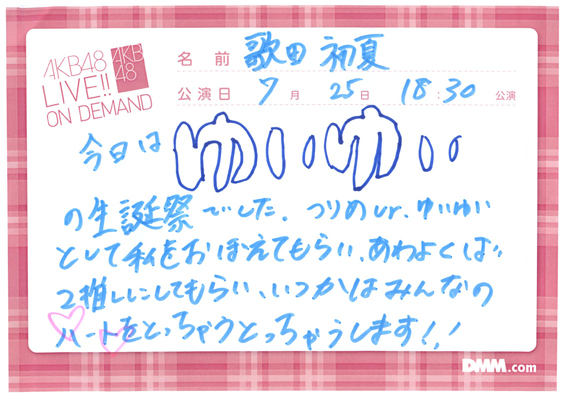 AKB48
LIVE!!
ON DEMAND
AKB
48
名前 歌田 初夏
公演日 7月 25日 18:30 公演
今日は ゆいゆい
の生誕祭でした。つりめJr.ゆいゆい
として私をおぼえてもらい、あわよくば
2推しにしてもらい、いつかはみんなの
ハートをとっちゃうとっちゃうします!!
DMM.com